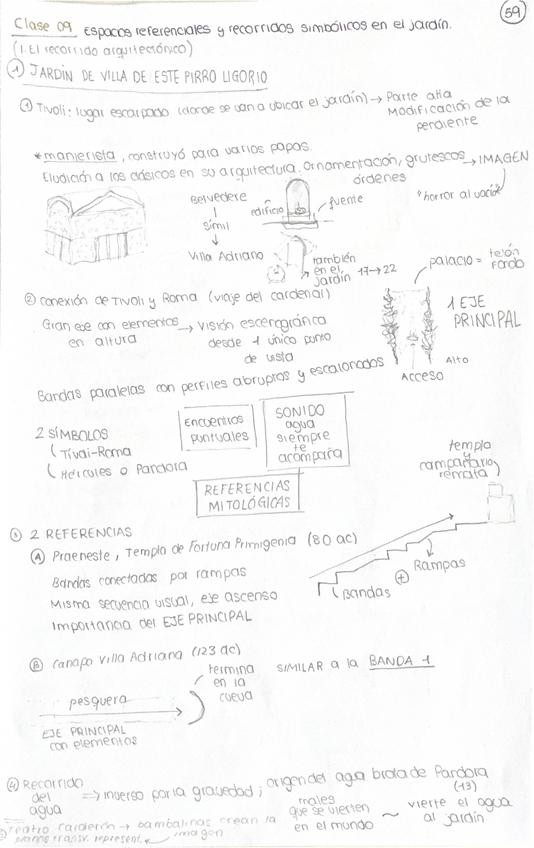 59
Clase 09 Espacios referenciales y recorridos simbólicos en el jardín.
(1. El recorrido arquitectónico)
① JARDÍN DE VILLA DE ESTE PIRRO LIGORIO
① Tivoli: lugar escarpado (donde se van a ubicar el jardín) → Parte alta
Modificación de la
pendiente
* manierista, construyó para varios papas.
Eludición a los clásicos en su arquitectura. Ornamentación, grutescos → IMAGEN
órdenes
"horror al vacío"
Belvedere
símil
Villa Adriano
edificio
fuente
también
en el
jardín 17→22
palacio = telón
fondo
② conexión de Tivoli y Roma (viaje del cardenal)
Gran eje con elementos → visión escenográfica
en altura
desde 1 único punto
de vista
1 EJE
PRINCIPAL
Alto
Acceso
Bandas paralelas con perfiles abruptos y escalonados
2 SÍMBOLOS
Tívoli-Roma
Hércules o Pandora
Encuentros
puntuales
SONIDO
agua
siempre
te
acompaña
REFERENCIAS
MITOLÓGICAS
templo
y
campanario
remata
③ 2 REFERENCIAS
Ⓐ Praeneste, Templo de Fortuna Primigenia (80 ac)
Bandas conectadas por rampas
Misma secuencia visual, eje ascenso
Importancia del EJE PRINCIPAL
Bandas
+
Rampas
Ⓑ Canapo Villa Adriana (123 dc)
termina
en la
cueva
SIMILAR a la BANDA 1
pesquera
EJE PRINCIPAL
con elementos
④ Recorrido
del
agua
=> inverso por la gravedad; origen del agua brota de Pandora
(13)
males
que se vierten
en el mundo
~ vierte el agua
al jardín
Teatro Calderón → bambalinas crean la
imagen
transv. represent.